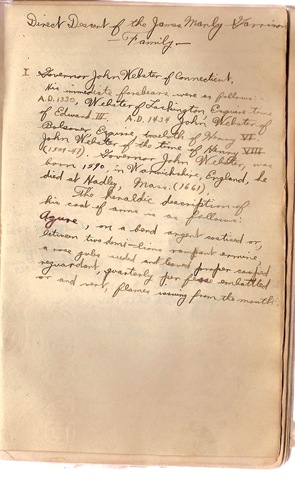 Direct Descent of the James Manly Harrison
Family
I. Governor John Webster of Connecticut,
his immediate forebears were as follows:
A.D. 1330, Webster of Lockington Esquire time
of Edward III. A.D. 1434 John Webster of
Bolsover, Esquire, twelfth of Henry VI.
John Webster of the time of Henry VIII
(1509-47). Governor John Webster, was
born 1590, in Warwickshire, England, he
died at Hadly, Mass. (1661).
The heraldic description of
his coat of arms is as follows:
Azure, on a bend argent cotised or,
between two demi-lions rampant ermine,
a rose gules seeded and leaved proper couped
reguardant, quarterly per fess embattled
or and vert, flames issuing from the mouth.